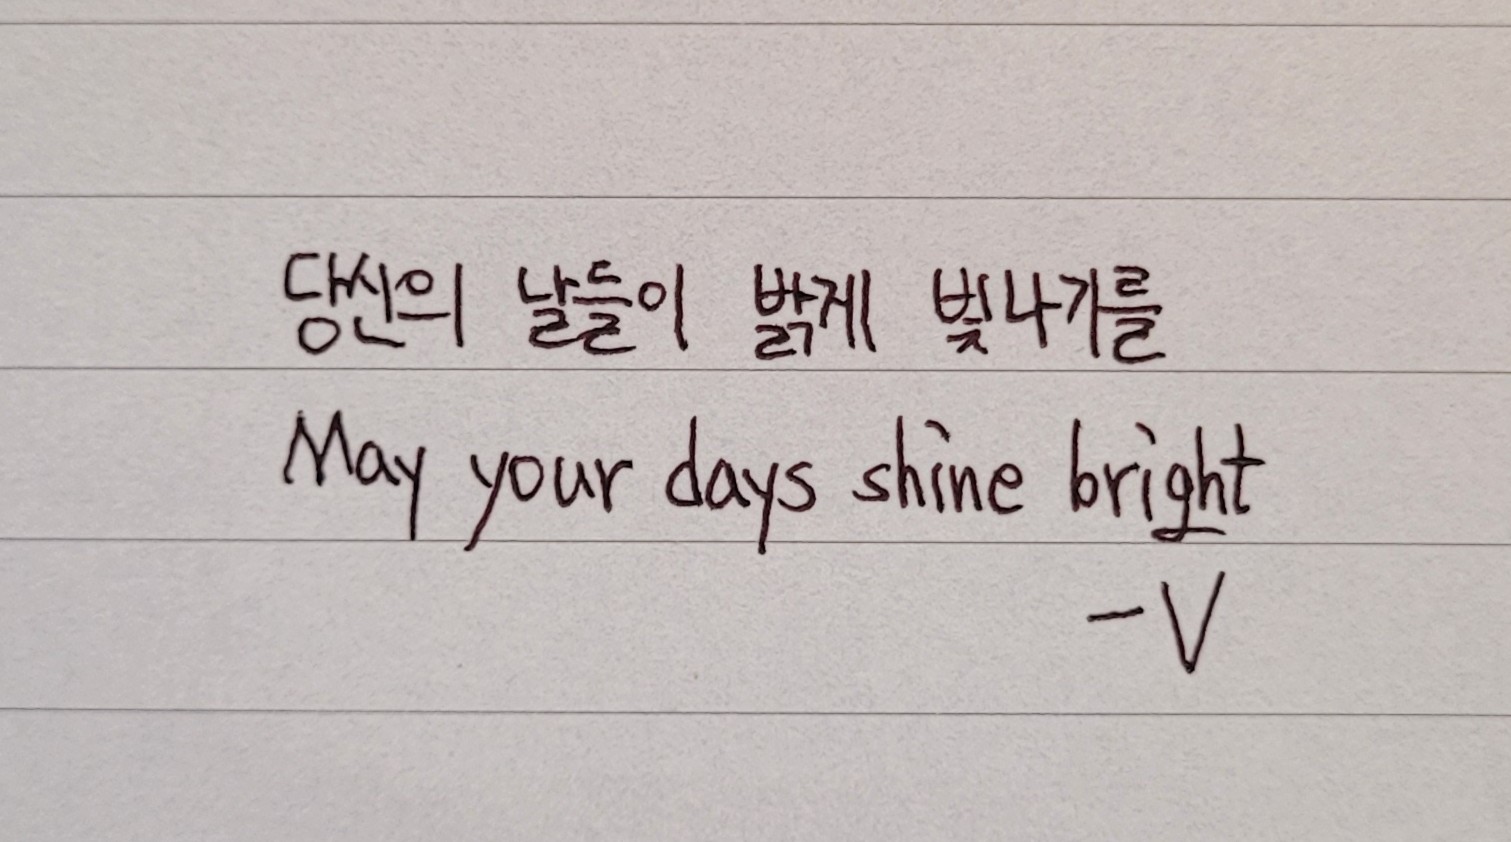 당신의 날들이 밝게 빛나기를
May your days shine bright
-V